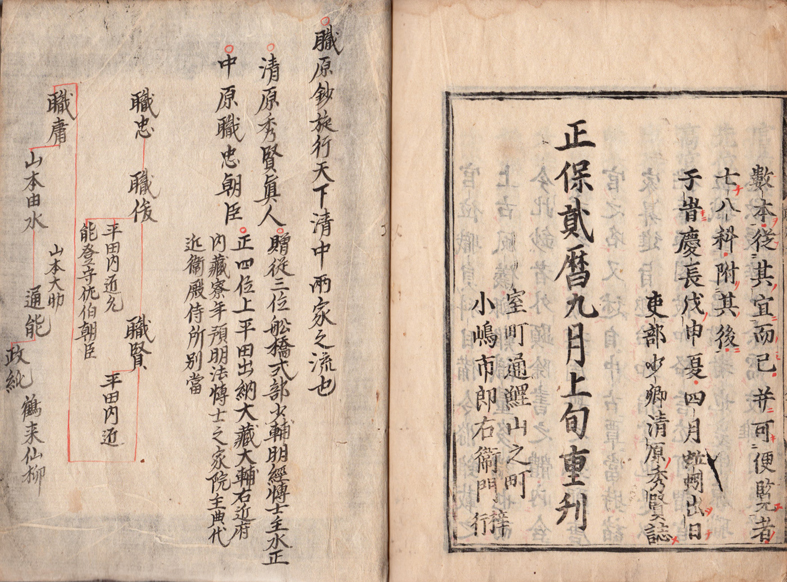 數本從其宜而已并可便覧者
七八科附其後
于旹慶長戊申夏四月蚯蚓出日
吏部少卿清原秀賢誌
正保貳暦九月上旬重刋
室町通鯉山之町
小嶋市郎右衞門梓行
職原鈔旋行天下清中兩家之流也
清原秀賢眞人 贈從三位舩橋式部少輔明經博士主水正
中原職忠朝臣 正四位上平田出納大藏大輔右近府
内藏寮年預明法博士之家院主典代
近衛殿侍所別當
職忠 職俊 職賢 平田内近
平田内近允
能登守
朝臣
職庸
山本由水 通能 政純 鶴来仙柳
山本大助